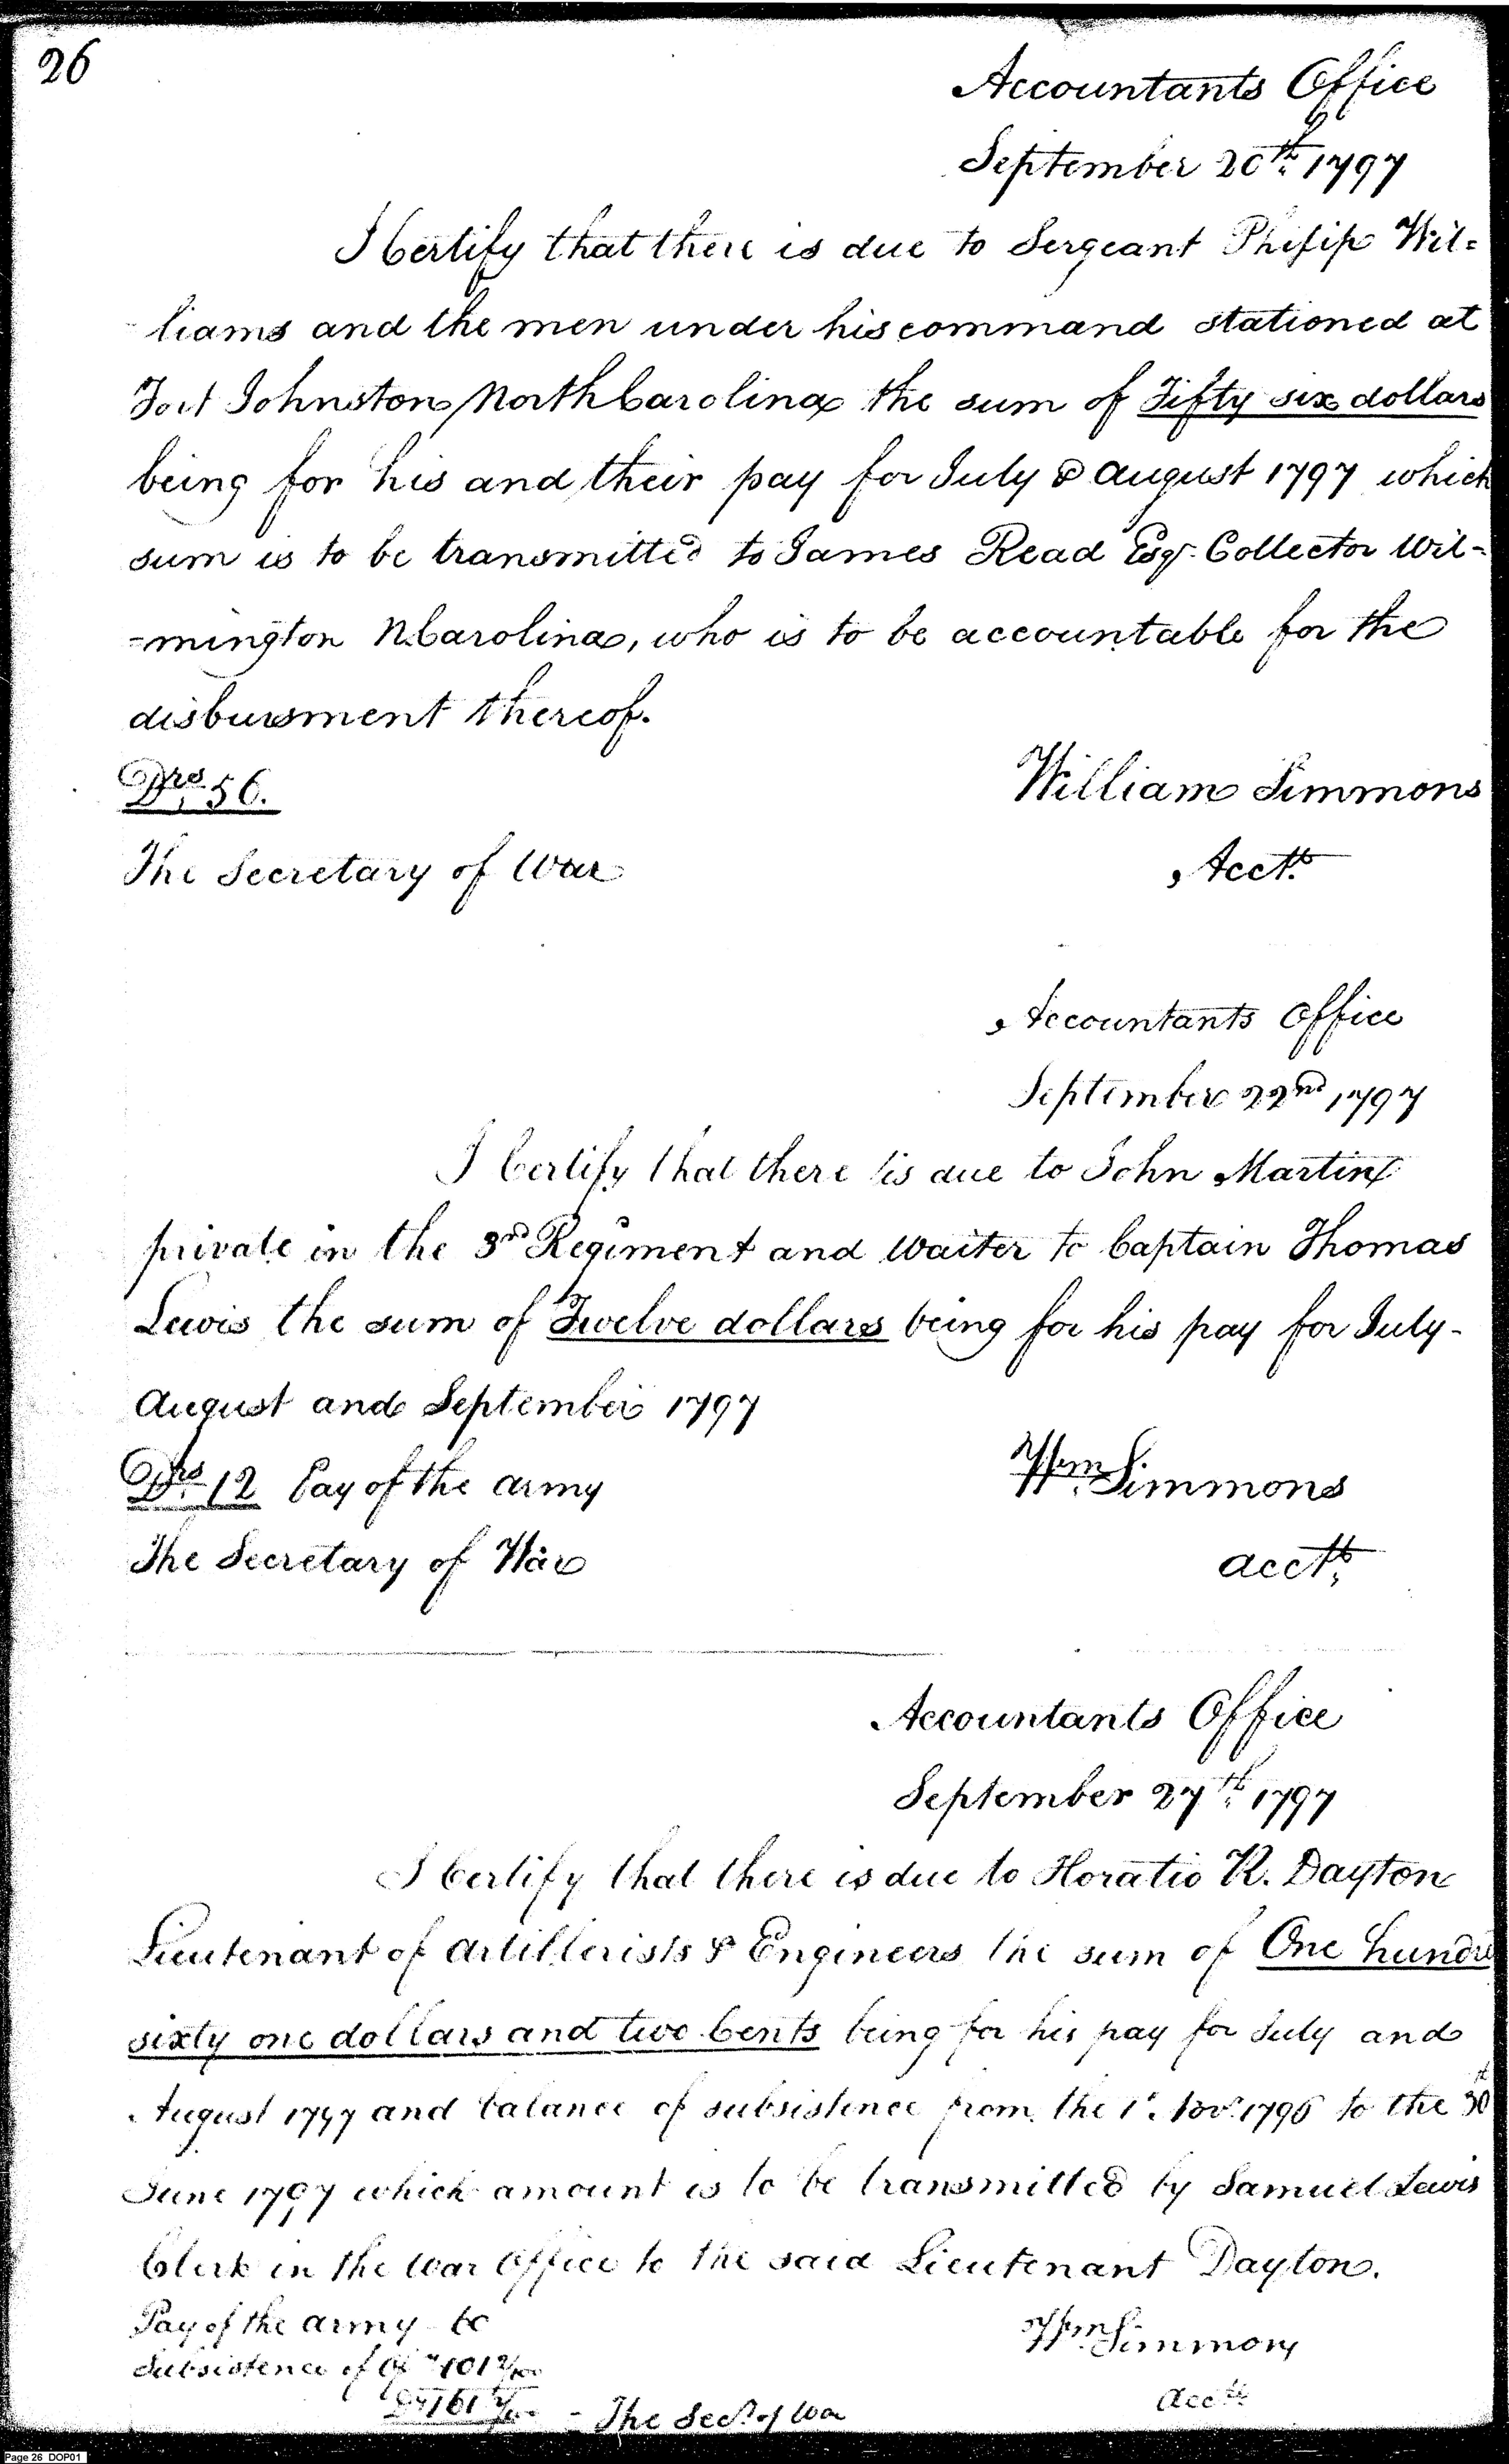 26
Accountants Office
September 20th 1797
I Certify that there is due to Sergeant Philip Wil=
liams and the men under his command stationed at
Fort Johnston North Carolina the sum of Fifty six dollars
being for his and their pay for July & August 1797 which
sum is to be transmitted to James Read Esqr. Collector Wil-
-mington N Carolina, who is to be accountable for the
disbursment thereof.
Drs 56.
William Simmons
The Secretary of War
Acctt.
Accountants Office
September 22nd 1797
I Certify that there is due to John Martin
private in the 3rd Regiment and Waiter to Captain Thomas
Lewis the sum of Twelve dollars being for his pay for July-
August and September 1797
Drs 12 Pay of the Army
Wm. Simmons
The Secretary of War
acctt.
Accountants Office
September 27th 1797
I Certify that there is due to Horatio R. Dayton
Lieutenant of Artillerists & Engineers the sum of One hundre
sixty one dollars and two Cents being for his pay for July and
August 1797 and balance of subsistence from the 1t. Novr. 1796 to the 30t
June 1797 which amount is to be transmitted by Samuel Lewis
Clerk in the War Office to the said Lieutenant Dayton.
Pay of the Army 60
Wm. Simmons
Subsistence of Off " 101 2/100
Ds 161 2/100 - The Secy. of War
acctt.
Page 26 DOP01